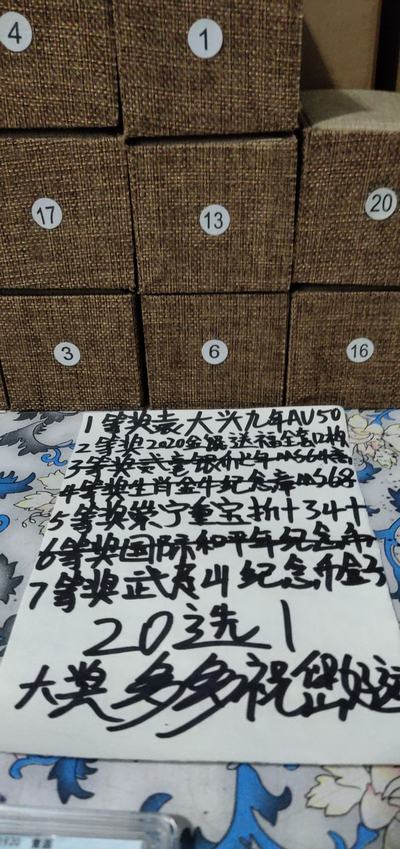 4
1
17
13
20
3
6
16
1等奖袁大头九年AU50
2等奖2020金银送福全套
3等奖
4等奖生肖金牛纪念MS68
5等奖崇宁重宝折十34十
6等奖国际和平年纪念币
7等奖武夷山纪念币
20选1
大奖多多祝您好运